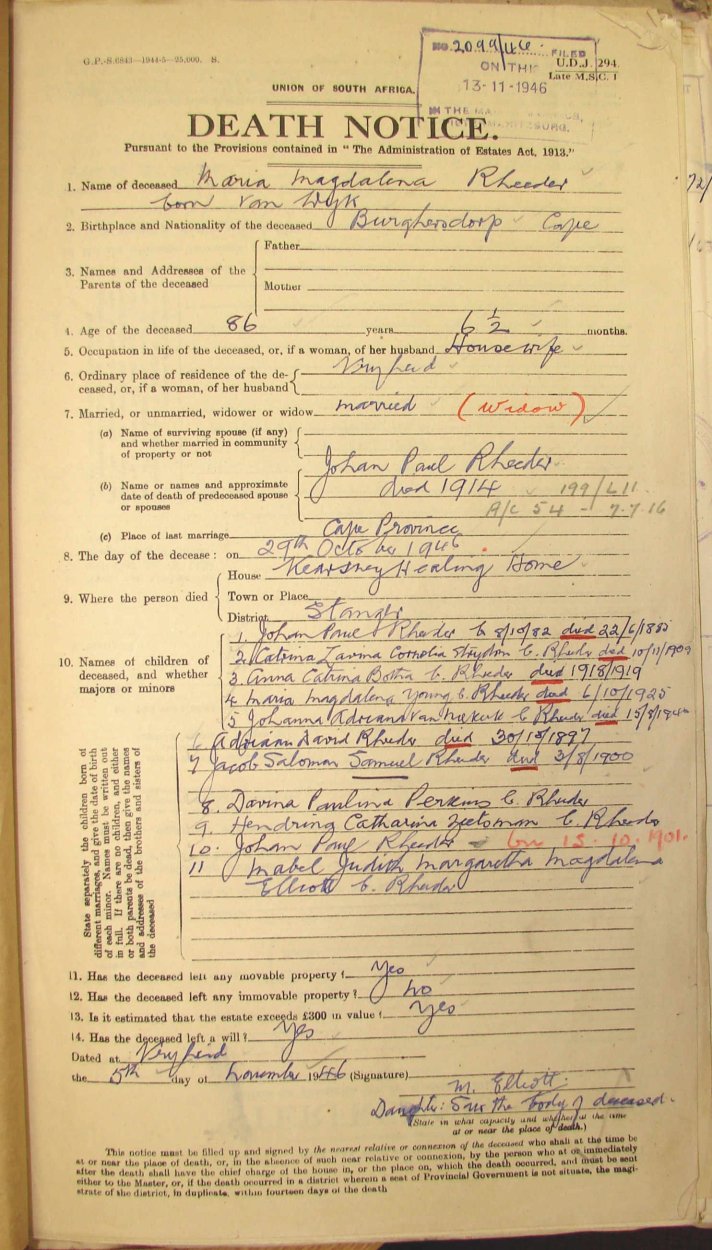 G.P.-S.6843—1944-5—25,000. S.
NO. 2099/46. FILED
ON THIS
13-11-1946
IN THE MA
U.D.J. 294.
Late M.S.C. 1
UNION OF SOUTH AFRICA.
DEATH NOTICE.
Pursuant to the Provisions contained in "The Administration of Estates Act, 1913."
1. Name of deceased Maria Magdalena Rheeder
born Van Wyk
2. Birthplace and Nationality of the deceased Burghersdorp Cape
3. Names and Addresses of the Parents of the deceased
Father
Mother
4. Age of the deceased 86 years 6 1/2 months.
5. Occupation in life of the deceased, or, if a woman, of her husband Housewife
6. Ordinary place of residence of the deceased, or, if a woman, of her husband Vryheid
7. Married, or unmarried, widower or widow married (Widow)
(a) Name of surviving spouse (if any) and whether married in community of property or not
(b) Name or names and approximate date of death of predeceased spouse or spouses
Johan Paul Rheeder
died 1914 199/L11
A/C 54 - 7.7.16
(c) Place of last marriage Cape Province
8. The day of the decease: on 29th October 1946
9. Where the person died
House Kearsney Healing Home
Town or Place
District Stanger
10. Names of children of deceased, and whether majors or minors
State separately the children born of different marriages, and give the date of birth of each minor. Names must be written out in full. If there are no children, and either or both parents be dead, then give the names and addresses of the brothers and sisters of the deceased
1. Johan Paul Rheeder b 8/10/82 died 22/6/1885
2. Catrina Lavina Cornelia Strydom b. Rheeder died 10/11/1909
3. Anna Catrina Botha b. Rheeder died 1918/1919
4 Maria Magdalena Young b. Rheeder died 6/10/1925
5 Johanna Adriana van b Rheeder died
6 Adriaan David Rheeder died 1897
7 Jacob Salomon Samuel Rheeder died 3/8/1900
8. Davina Paulina Perkins b. Rheeder
9. Hendrina Catharina Zietsman b. Rheeder
10. Johan Paul Rheeder born 15.10.1901.
11 Mabel Judith Margaretha Magdalena
Elliott b. Rheeder
11. Has the deceased left any movable property? Yes
12. Has the deceased left any immovable property? No
13. Is it estimated that the estate exceeds £300 in value? Yes
14. Has the deceased left a will? Yes
Dated at Vryheid
the 5th day of November 1946 (Signature) M. Elliott.
Daughter: Saw the body of deceased.
(State in what capacity and whether at the time at or near the place of death.)
This notice must be filled up and signed by the nearest relative or connexion of the deceased who shall at the time be
at or near the place of death, or, in the absence of such near relative or connexion, by the person who at or immediately
after the death shall have the chief charge of the house in, or the place on, which the death occurred, and must be sent
either to the Master, or, if the death occurred in a district wherein a seat of Provincial Government is not situate, the magi-
strate of the district, in duplicate, within fourteen days of the death